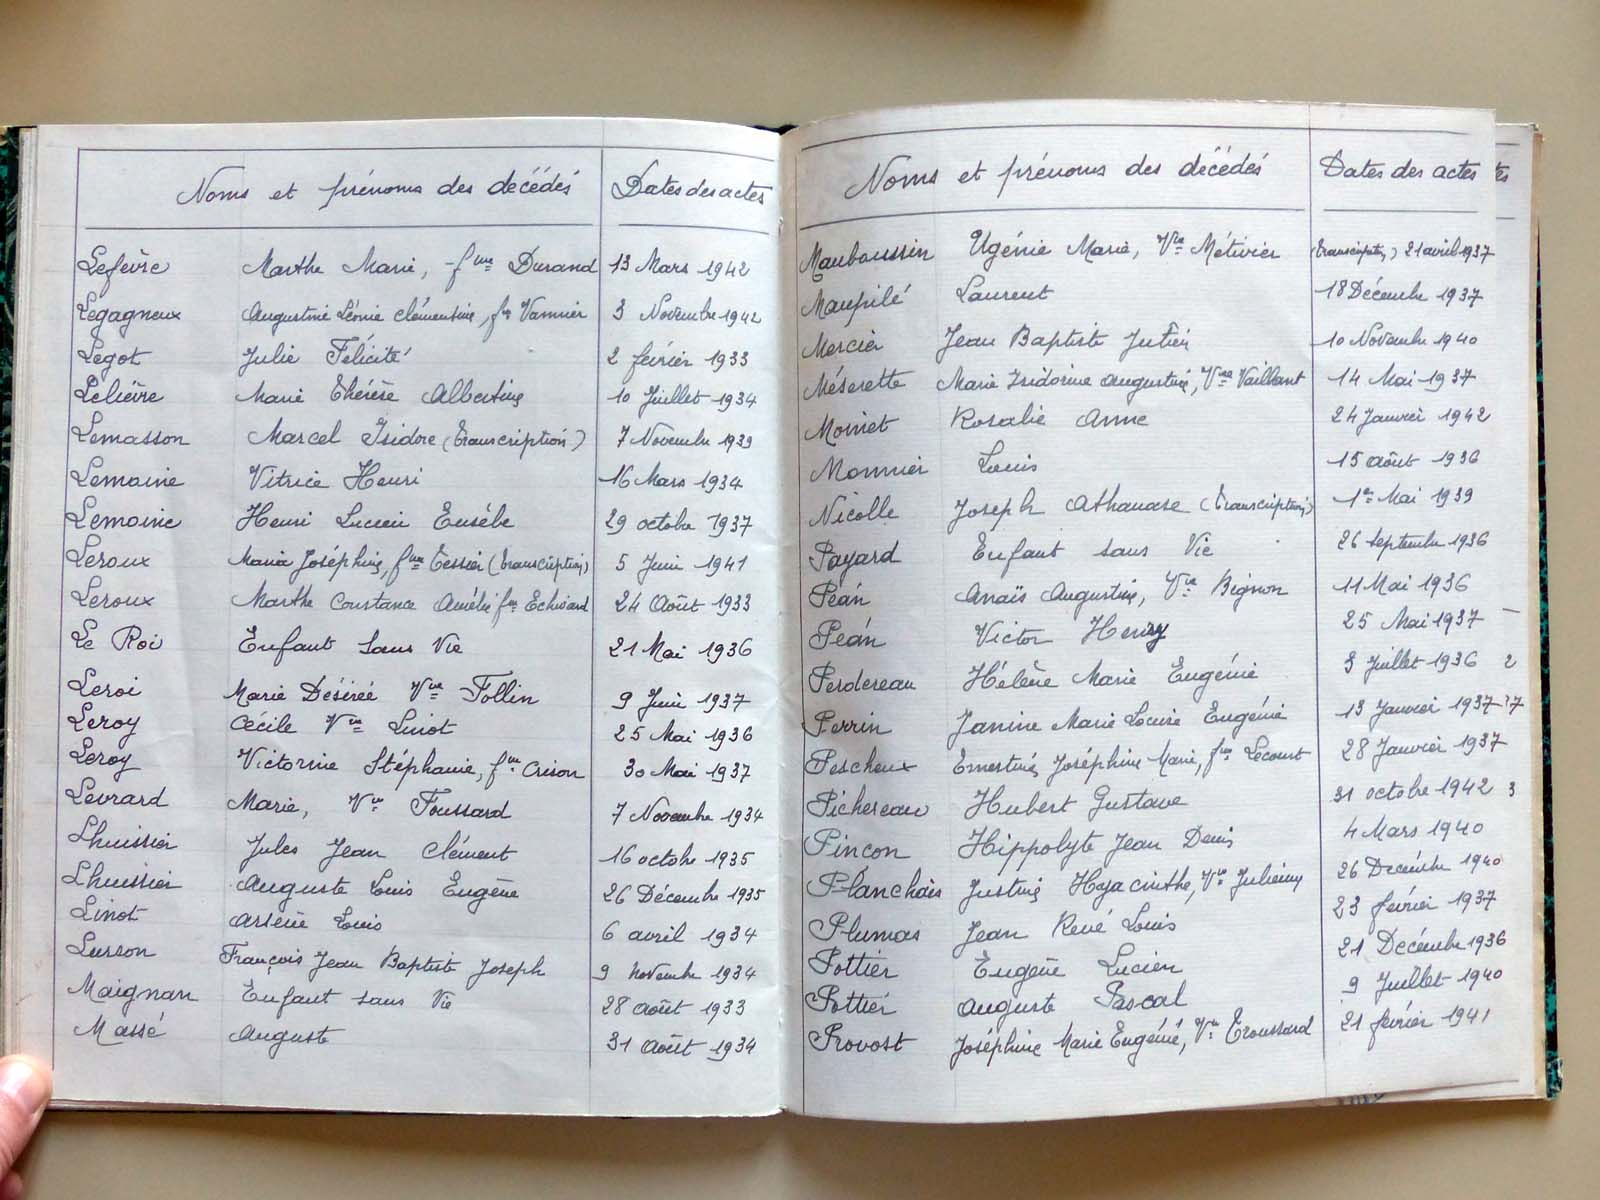 Noms et prénoms des décédés Dates des actes
Lefèvre Marthe Marie, fme Durand 13 Mars 1942
Legagneux Augustine Léonie Clémentine, fme Vannier 3 Novembre 1942
Legot Julie Félicité 2 février 1933
Lelièvre Marie Thérèse Albertine 10 Juillet 1934
Lemasson Marcel Isidore (transcription) 7 Novembre 1939
Lemoine Vitrice Henri 16 Mars 1934
Lemoine Henri Lucien Eusèbe 29 octobre 1937
Leroux Maria Joséphine, fme Tessier (transcription) 5 Juin 1941
Leroux Marthe Constance Amélie fme Echivard 24 Août 1933
Le Roi Enfant sans Vie 21 Mai 1936
Leroi Marie Désirée Vve Follin 9 Juin 1937
Leroy Cécile Vve Linot 25 Mai 1936
Leroy Victorine Stéphanie, fme Crison 30 Mai 1937
Levrard Marie, Vve Foussard 7 Novembre 1934
Lhuissier Jules Jean Clément 16 octobre 1935
Lhuissier Auguste Louis Eugène 26 Décembre 1935
Linot Arsène Louis 6 avril 1934
Lusson François Jean Baptiste Joseph 9 novembre 1934
Maignan Enfant sans Vie 28 août 1933
Massé Auguste 31 Août 1934
Noms et prénoms des décédés Dates des actes
Mauboussin Ugénie Marie, Vve Métivier (transcription) 21 avril 1937
Maupilé Laurent 18 Décembre 1937
Mercier Jean Baptiste Julien 10 Novembre 1940
Méserette Marie Isidorine Augustine, Vve Vaillant 14 Mai 1937
Moinet Rosalie Anne 24 Janvier 1942
Monnier Louis 15 Août 1936
Nicolle Joseph Athanase (transcription) 1er Mai 1939
Payard Enfant sans Vie 26 septembre 1936
Péan Anaïs Augustine, Vve Bignon 11 Mai 1936
Péan Victor Henry 25 Mai 1937
Perdereau Hélène Marie Eugénie 3 Juillet 1936
Perrin Janine Marie Louise Eugénie 13 Janvier 1937
Pescheux Ernestine Joséphine Marie, fme Lecourt 28 Janvier 1937
Pichereau Hubert Gustave 31 octobre 1942
Pincon Hippolyte Jean Denis 4 Mars 1940
Planchais Justine Hyacinthe, Vve Julienne 26 Decembre 1940
Plumas Jean René Louis 23 février 1937
Pottier Eugène Lucien 21 Decémbre 1936
Pottier Auguste Pascal 9 Juillet 1940
Provost Joséphine Marie Eugénie, Vve Troussard 21 février 1941